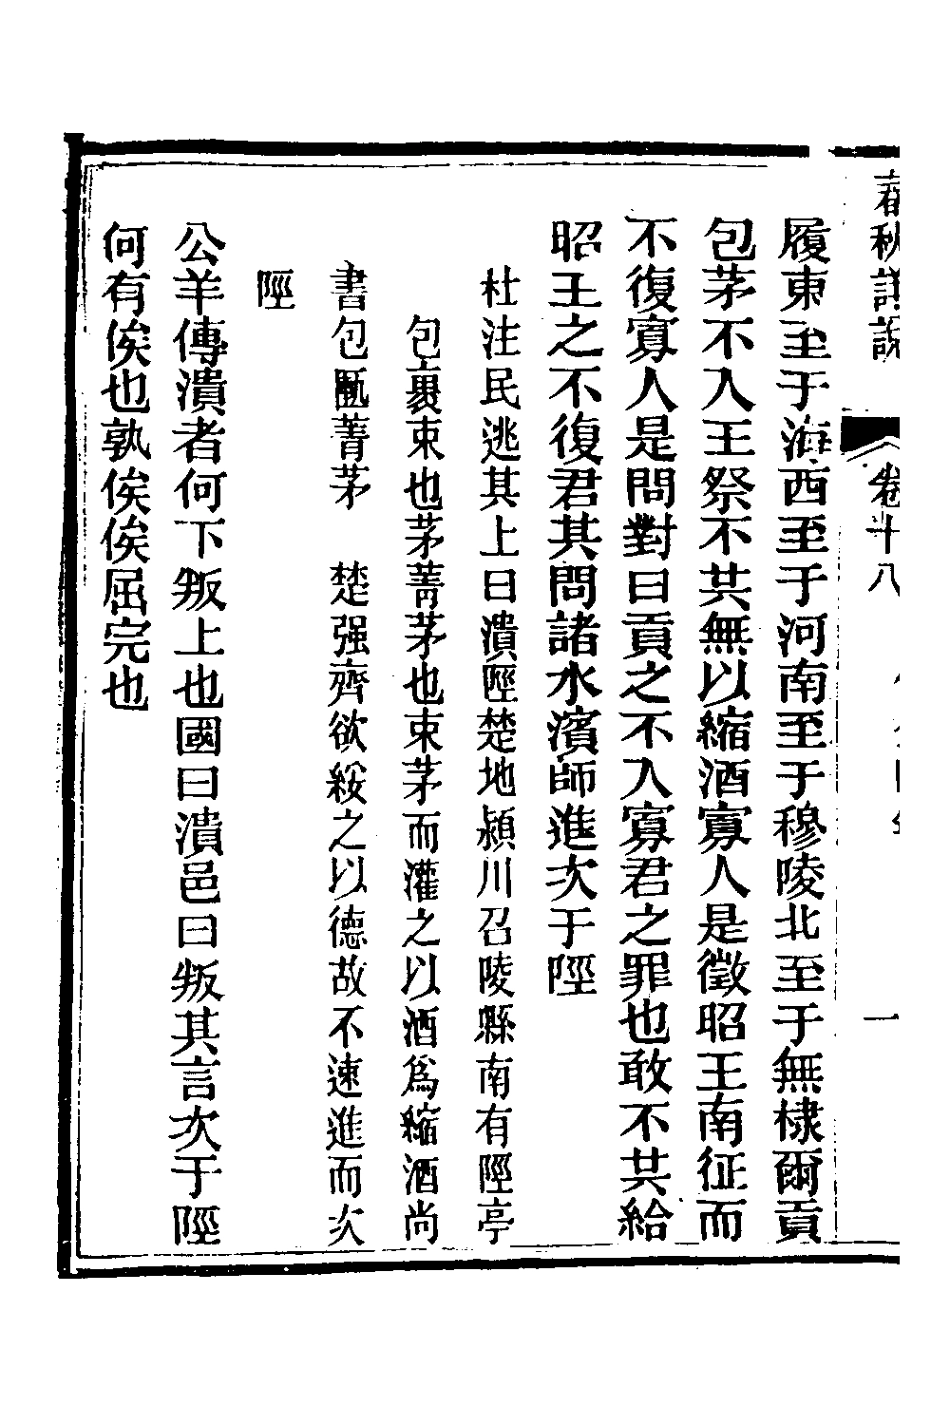 春秋說
卷十八
一
履東至于海西至于河南至于穆陵北至于無棣爾貢
包茅不入王祭不共無以縮酒寡人是徵昭王南征而
不復寡人是問對曰貢之不入寡君之罪也敢不共給
昭王之不復君其問諸水濱師進次于陘
杜注民逃其上曰潰陘楚地潁川召陵縣南有陘亭
包裹束也茅菁茅也束茅而灌之以酒爲縮酒尚
書包匭菁茅　楚强齊欲綏之以德故不速進而次
陘
公羊傳潰者何下叛上也國曰潰邑曰叛其言次于陘
何有俟也孰俟俟屈完也